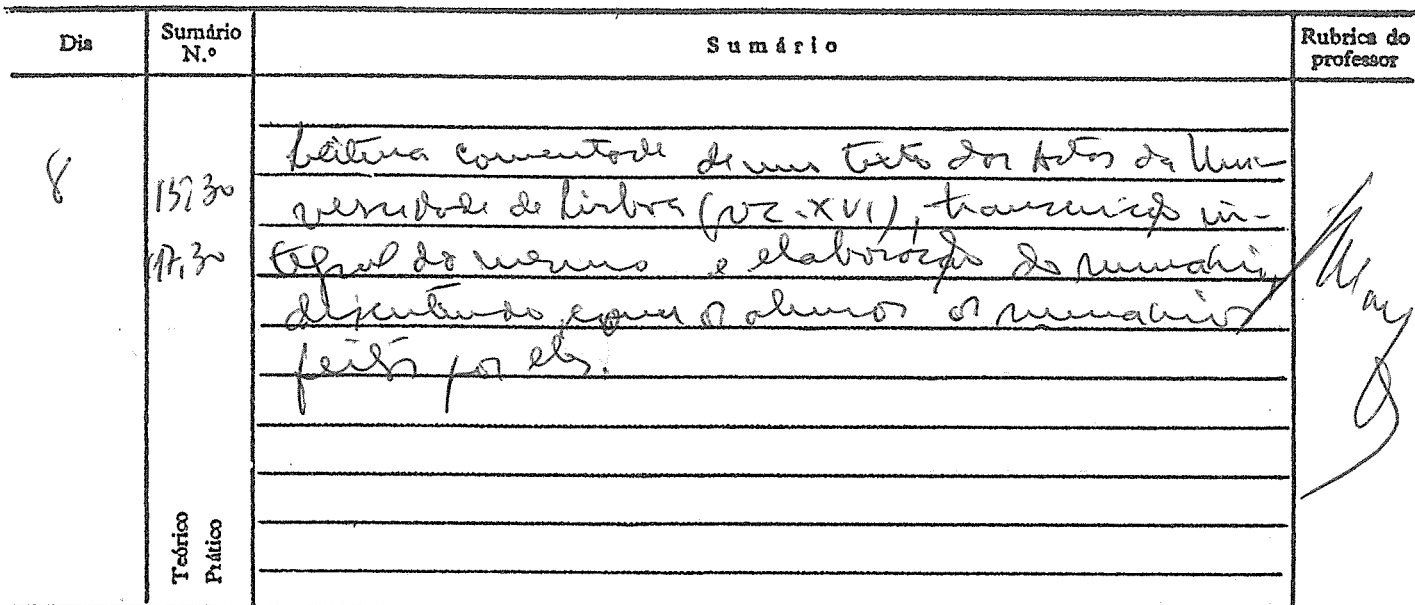 Dia
Sumário N.º
Sumário
Rubrica do professor
8
15,30
17,30
Leitura comentada de um texto dos Actos da Uni-
versidade de Lisboa (séc. XVI), transcrição in-
tegral do mesmo e elaboração do sumário,
discutindo com os alunos os sumários
feitos por eles.
Teórico
Prático